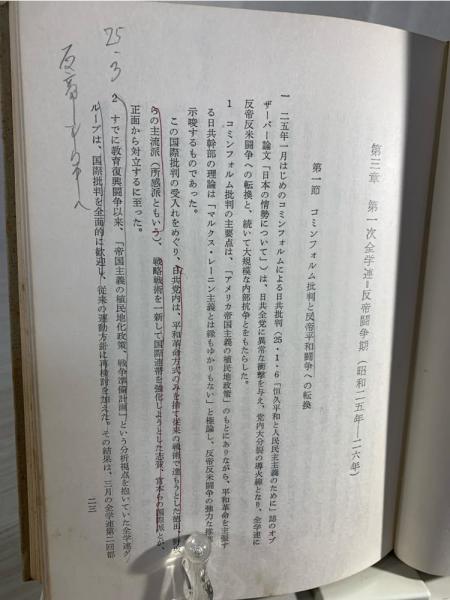 第三章 第一次全学連=反帝闘争期（昭和二五年―二六年）
第一節 コミンフォルム批判と反帝平和闘争への転換
一 二五年一月はじめのコミンフォルムによる日共批判（25・1・6「恒久平和と人民民主主義のために」誌のオブ
ザーバー論文「日本の情勢について」）は、日共全党に異常な衝撃を与え、党内大分裂の導火線となり、全学連に
反帝反米闘争への転換と、続いて大規模な内部抗争とをもたらした。
1 コミンフォルム批判の主要点は、「アメリカ帝国主義の植民地政策」のもとにありながら、平和革命を主張す
る日共幹部の理論は「マルクス・レーニン主義とは縁もゆかりもない」と極論し、反帝反米闘争の強力な推
示唆するものであった。
この国際批判の受入れをめぐり、日共党内は、平和革命方式のみを捨て従来の戦術で進もうとした徳田・野
らの主流派（所感派ともいう）、戦略戦術を一新して国際連帯を強化しようとした志賀、宮本らの国際派とが、
正面から対立するに至った。
2 すでに教育復興闘争以来、「帝国主義の植民地化政策、戦争準備計画」という分析視点を抱いていた全学連グ
ループは、国際批判を全面的に歓迎し、従来の運動方針に再検討を加えた。その結果は、三月の全学連第二回都
二三
25・3